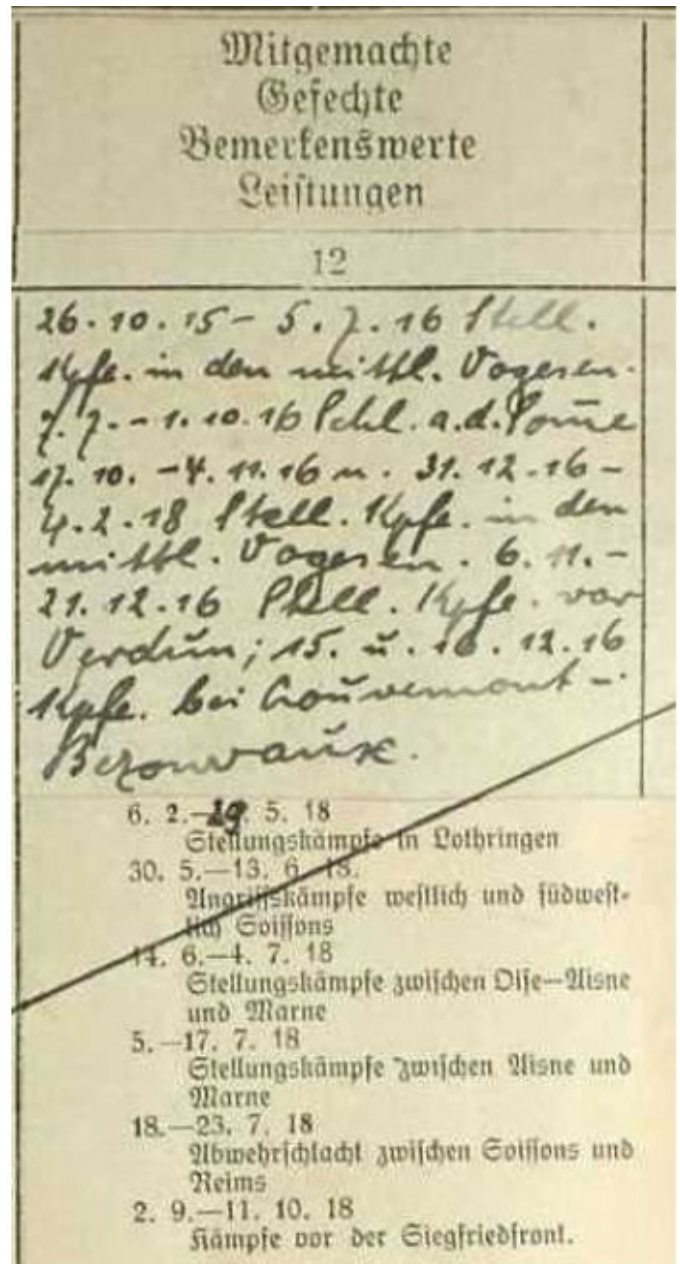 Mitgemachte
Gefechte
Bemerkenswerte
Leistungen
12
26.10.15 – 5.7.16 Stell.
Kpfe. in den mittl. Vogesen.
7.7. – 1.10.16 Schl. a.d. Som̅e
17.10. – 4.11.16 u. 31.12.16 –
4.2.18 Stell. Kpfe. in den
mittl. Vogesen. 6.11. –
21.12.16 Stell. Kpfe. vor
Verdun; 15. u. 16.12.16
Kpfe. bei Louvemont –
Bezonvaux.
6. 2.—29. 5. 18
Stellungskämpfe in Lothringen
30. 5.—13. 6. 18.
Angriffskämpfe westlich und südwest-
lich Soissons
14. 6.—4. 7. 18
Stellungskämpfe zwischen Oise—Aisne
und Marne
5.—17. 7. 18
Stellungskämpfe zwischen Aisne und
Marne
18.—23. 7. 18
Abwehrschlacht zwischen Soissons und
Reims
2. 9.—11. 10. 18
Kämpfe vor der Siegfriedfront.